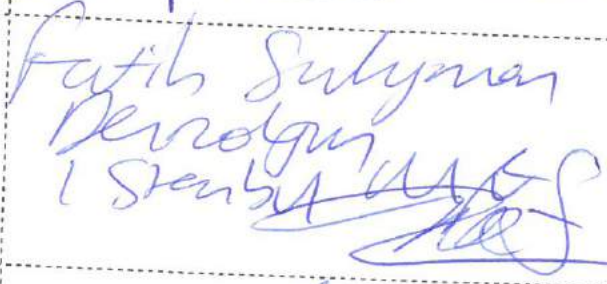 Fatih Sulyman
Denizolgun
Istanbul